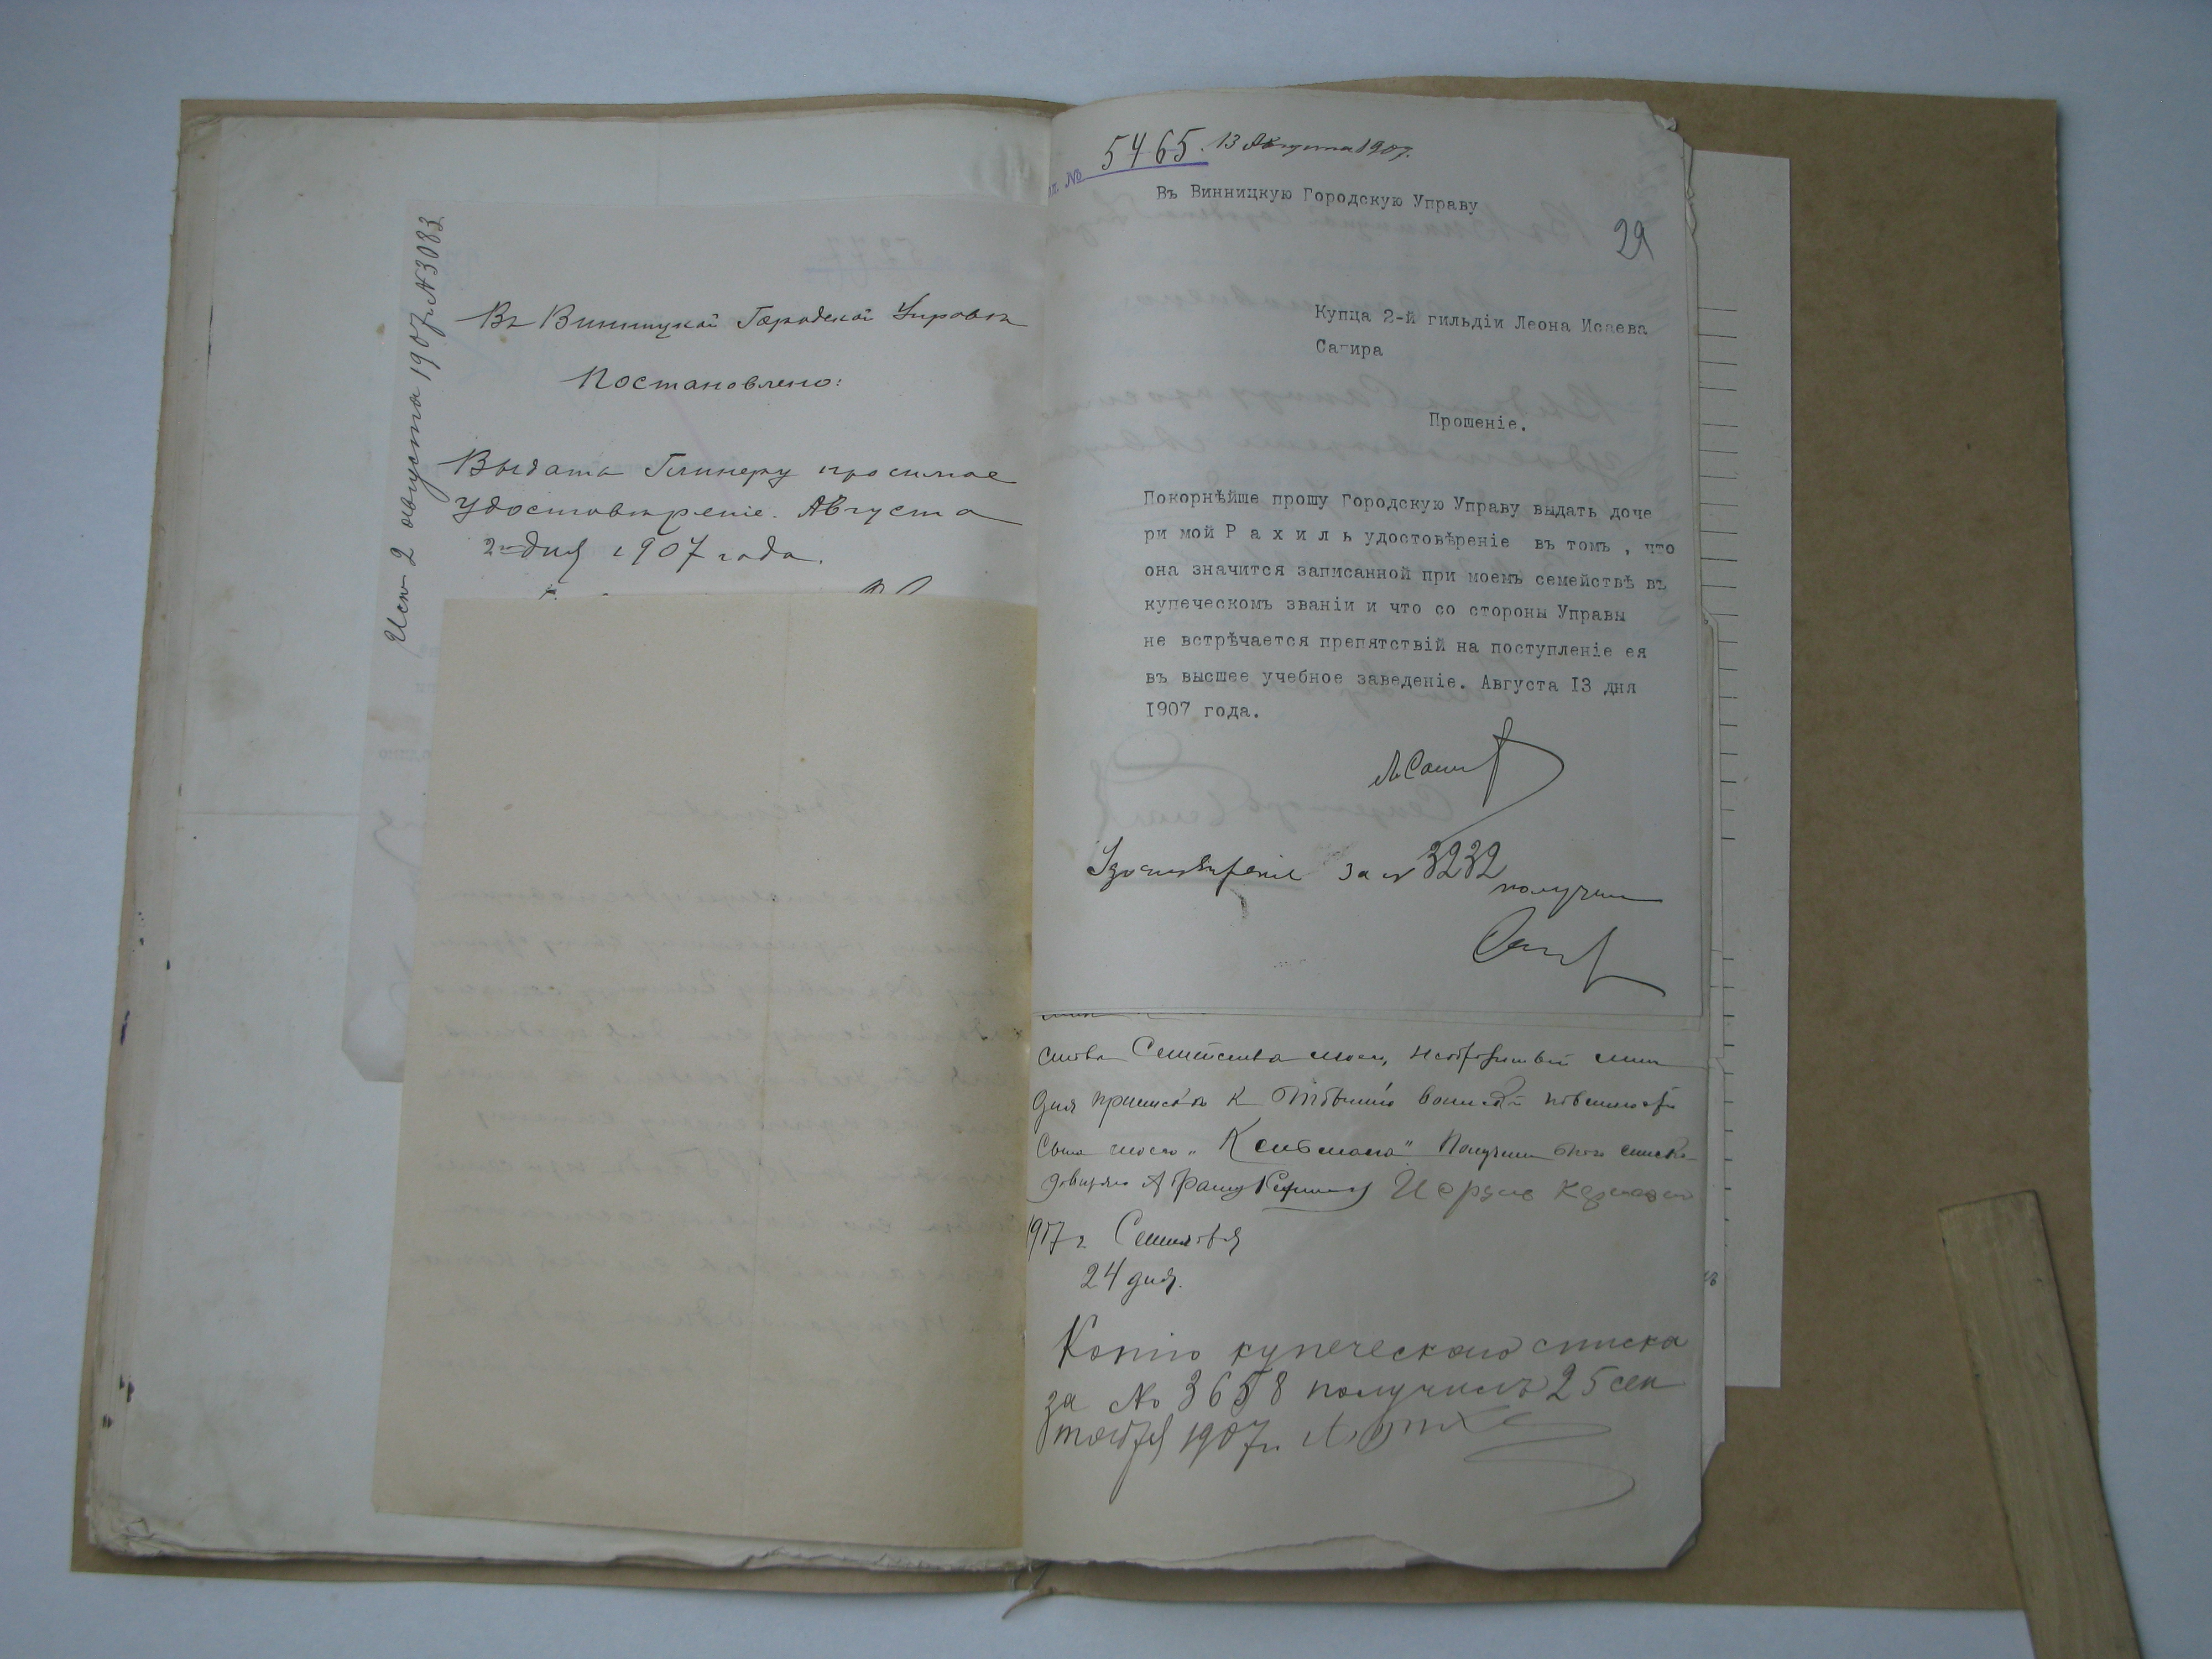 Исп 2 августа 1907 г. № 3083
Въ Винницкой Городской Управѣ
Постановлено:
Выдать Глинеру просимое
удостовѣреніе. Августа
2 дня 1907 года.
№ 5465. 13 Августа 1907.
Въ Винницкую Городскую Управу
29
Купца 2-й гильдіи Леона Исаева
Сагира
Прошеніе.
Покорнѣйше прошу Городскую Управу выдать доче
ри мой Р а х и л ь удостовѣреніе въ томъ , что
она значится записанной при моемъ семействѣ въ
купеческомъ званіи и что со стороны Управы
не встрѣчается препятствій на поступленіе ея
въ высшее учебное заведеніе. Августа I3 дня
I907 года.
Удостовѣреніе за № 3232
получил
Семейства моего,
для приписки к воинской повинности
сына моего Получить списка
довѣряю
1907 г. Сентября
24 дня.
Копію купеческаго списка
за № 3658 получилъ 25 сен
тября 1907 г.